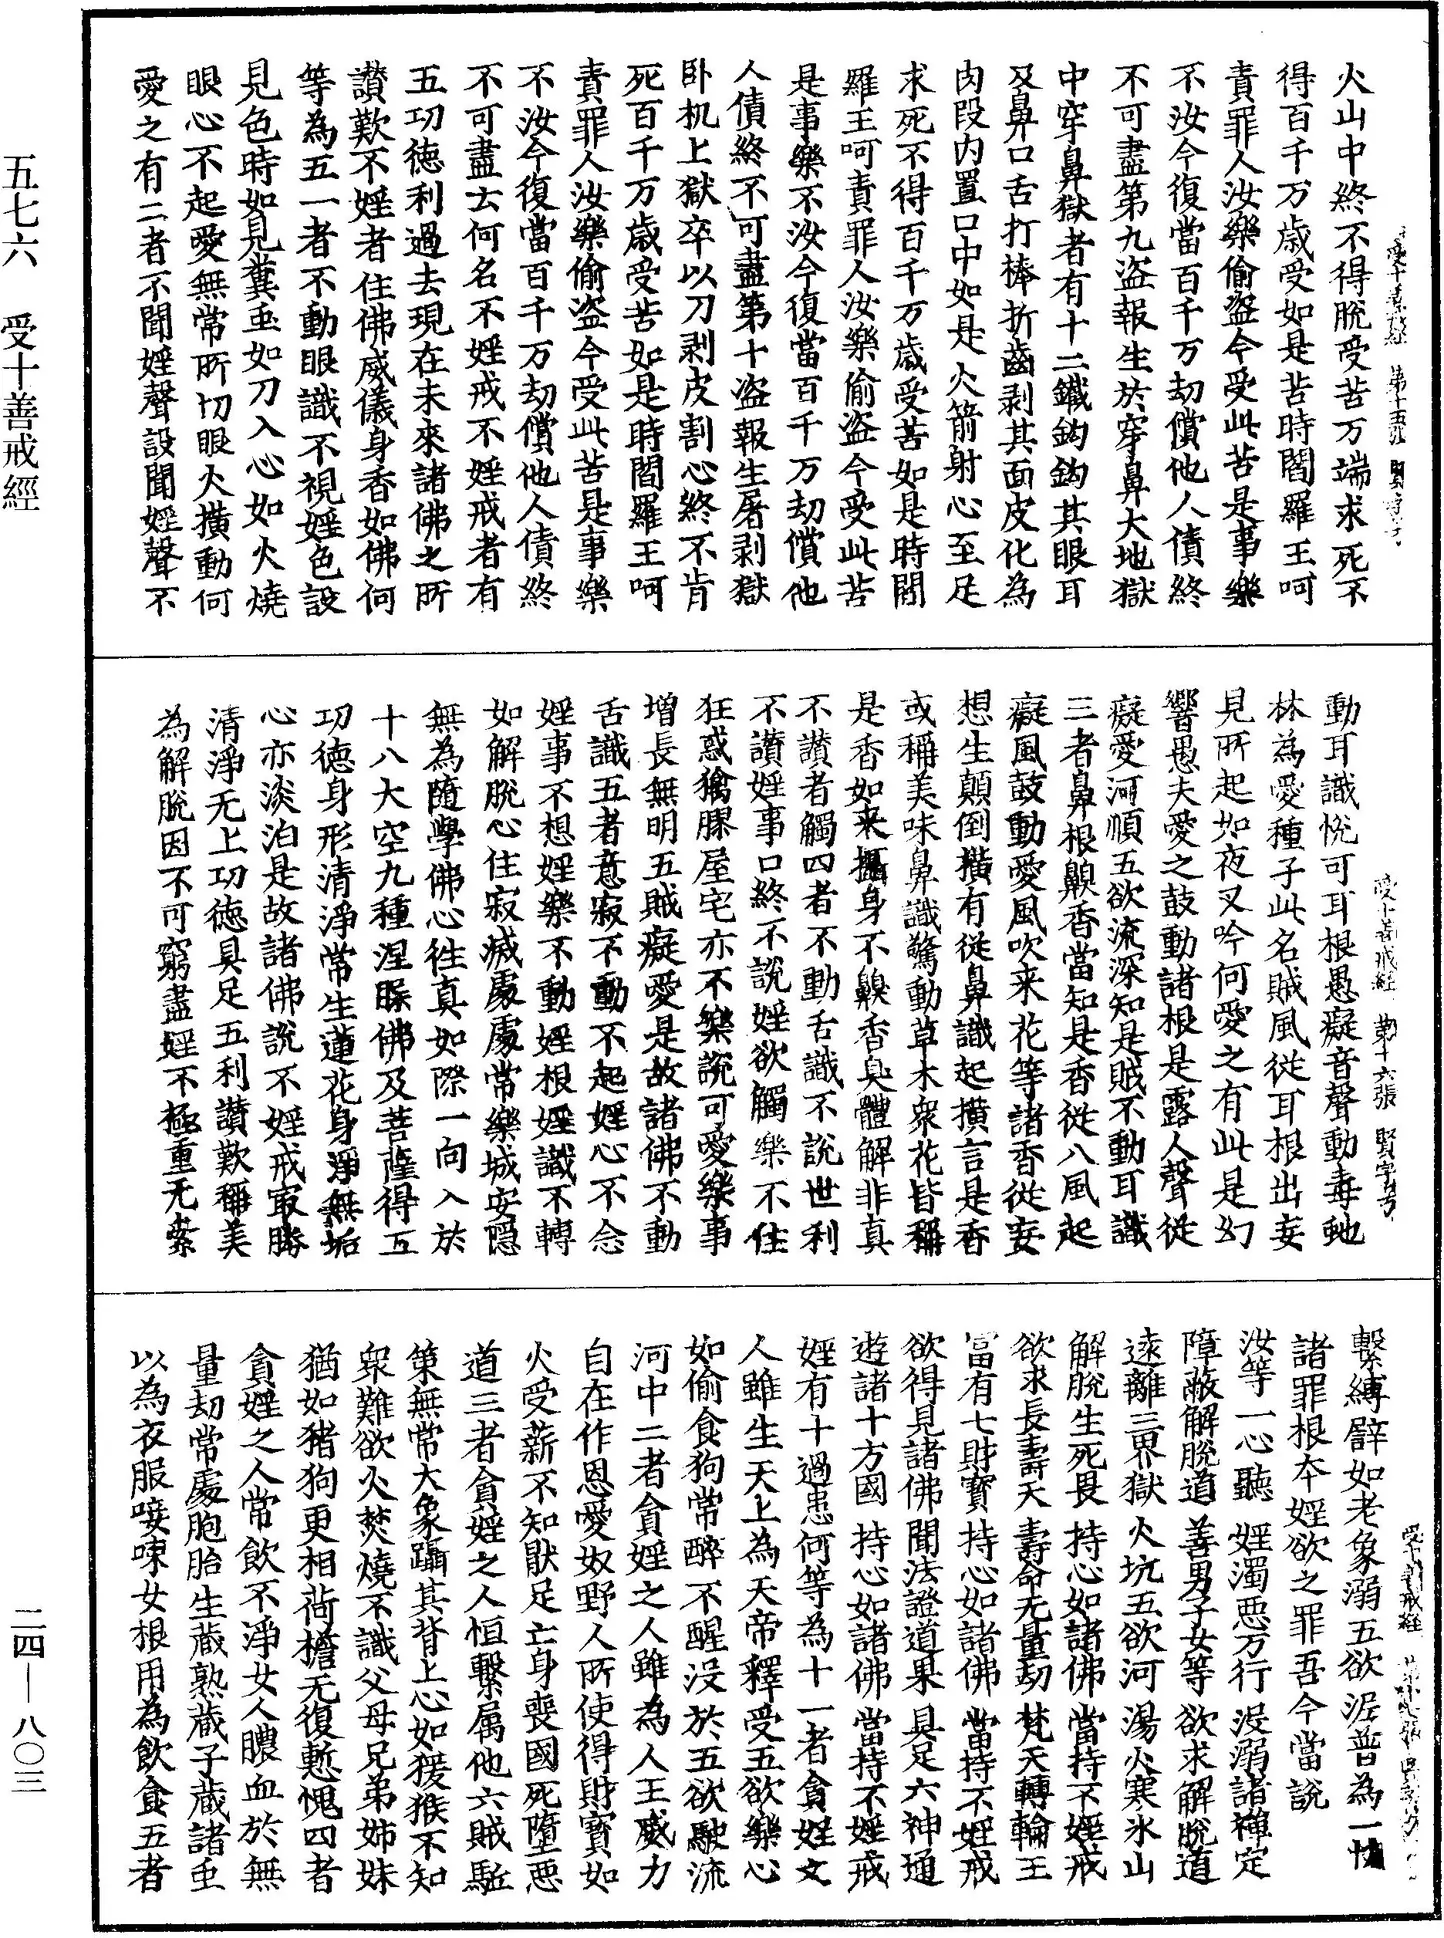 火山中終不得脫受苦万端求死不
得百千万歲受如是苦時閻羅王呵
責罪人汝樂偷盜今受此苦是事樂
不汝今復當百千万劫償他人債終
不可盡第九盜報生於穿鼻大地獄
中穿鼻獄者有十二鐵鉤鉤其眼耳
及鼻口舌打棒折齒剥其面皮化為
肉段内置口中如是火箭射心至足
求死不得百千万歲受苦如是時閻
羅王呵責罪人汝樂偷盜今受此苦
是事樂不汝今復當百千万劫償他
人債終不可盡第十盜報生屠剥獄
卧机上獄卒以刀剥皮割心終不肯
死百千万歲受苦如是時閻羅王呵
責罪人汝樂偷盜今受此苦是事樂
不汝今復當百千万劫償他人債終
不可盡云何名不婬戒不婬戒者有
五功德利過去現在未來諸佛之所
讃歎不婬者住佛威儀身香如佛何
等為五一者不動眼識不視婬色設
見色時如見糞虫如刀入心如火燒
眼心不起愛無常所切眼火橫動何
愛之有二者不聞婬聲設聞婬聲不
受十善戒經 第十六張 賢字号
動耳識悅可耳根愚癡音聲動毒虵
林為愛種子此名賊風從耳根出妄
見所起如夜叉吟何愛之有此是幻
響愚夫愛之鼓動諸根是露人聲從
癡愛河順五欲流深知是賊不動耳識
三者鼻根齅香當知是香從八風起
癡風鼓動愛風吹来花等諸香從妄
想生顛倒橫有從鼻識起橫言是香
或稱美味鼻識驚動草木衆花皆稱
是香如来攝身不齅香臭體解非真
不讃者觸四者不動舌識不說世利
不讃婬事口終不說婬欲觸樂不住
狂惑獦膠屋宅亦不樂說可愛樂事
增長無明五賊癡愛是故諸佛不動
舌識五者意寂不動不起婬心不念
婬事不想婬樂不動婬根婬識不轉
如解脫心住寂滅處處常樂城安隱
無為隨學佛心住真如際一向入於
十八大空九種涅槃佛及菩薩得五
功德身形清淨常生蓮花身淨無垢
心亦淡泊是故諸佛說不婬戒冣勝
清淨无上功德具足五利讃歎稱美
為解脫因不可窮盡婬不極重无橤
繫縛譬如老象溺五欲泥普為一切
諸罪根本婬欲之罪吾今當說
汝等一心聽 婬濁惡万行 没溺諸禪定
障蔽解脫道 善男子女等 欲求解脫道
遠離三界獄 火坑五欲河 湯火寒氷山
解脫生死畏 持心如諸佛 當持不婬戒
欲求長壽天 壽命无量劫 梵天轉輪王
富有七財寶 持心如諸佛 當持不婬戒
欲得見諸佛 聞法證道果 具足六神通
遊諸十方國 持心如諸佛 當持不婬戒
婬有十過患何等為十一者貪婬之
人雖生天上為天帝釋受五欲樂心
如偷食狗常醉不醒没於五欲駛流
河中二者貪婬之人雖為人王威力
自在作恩愛奴野人所使得財寶如
火受薪不知猒足亡身喪國死墮惡
道三者貪婬之人恒繫属他六賊駈
策無常大象躡其背上心如猨猴不知
衆難欲火焚燒不識父母兄弟姊妹
猶如猪狗更相荷擔无復慙愧四者
貪婬之人常飲不淨女人膿血於無
量劫常處胞胎生藏熟藏子藏諸虫
以為衣服唼唻女根用為飲食五者
五七六 受十善戒經
二四—八〇三